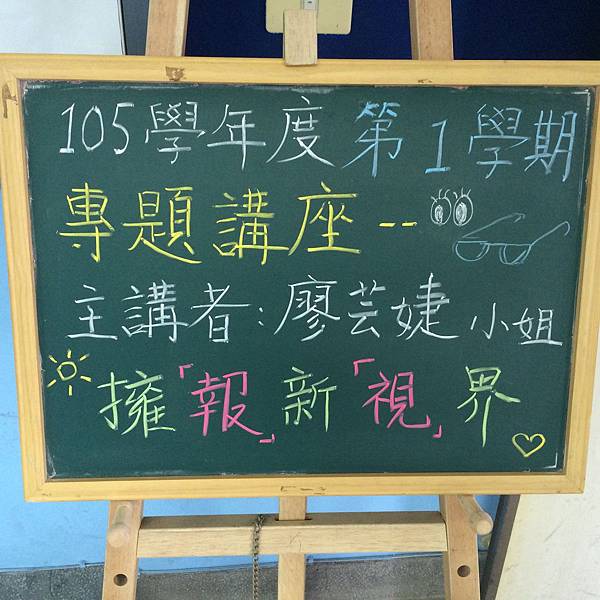 105學年度第1學期
專題講座--
主講者:廖芸婕 小姐
擁「報」新「視」界